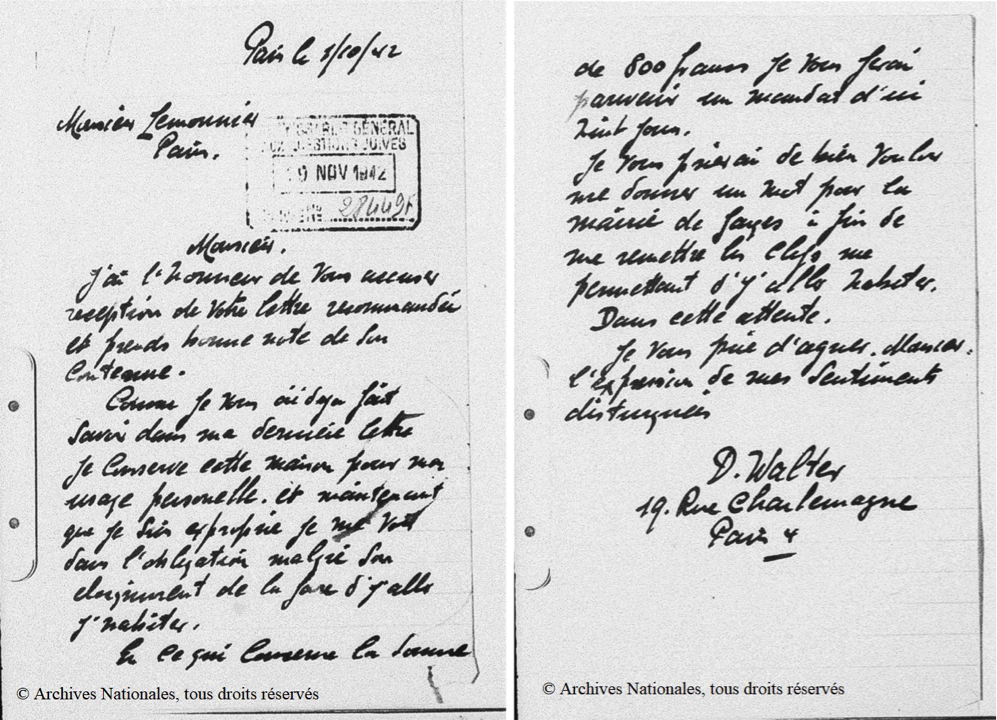 Paris le 1/10/42
Monsieur Lemonnier
Paris.
COMMISSARIAT GÉNÉRAL
AUX QUESTIONS JUIVES
9 NOV 1942
28449F
Monsieur.
j'ai l'honneur de vous accuser
reception de votre lettre recommandée
et prends bonne note de son
Contenue.
Comme Je vous ai deja fait
Savoir dans ma derniere lettre
Je Conserve cette maison pour mon
usage personelle. et maintenant
que je suis exproprie je me voit
dans l'obligation malgré son
eloignement de la gare d'y aller
y habiter.
En ce qui Concerne la Somme
© Archives Nationales, tous droits réservés
de 800 francs Je vous ferai
parvenir un mandat d'ici
huit Jours.
Je vous prierai de bien vouloir
me donner un mot pour la
mairie de à fin de
me remettre les Clefs me
permettant d'y aller habiter.
Dans cette attente.
Je vous prie d'agreer. Monsieur.
l'expression de mes Sentiments
distingueés
D. Walter
19. Rue Charlemagne
Paris 4
© Archives Nationales, tous droits réservés